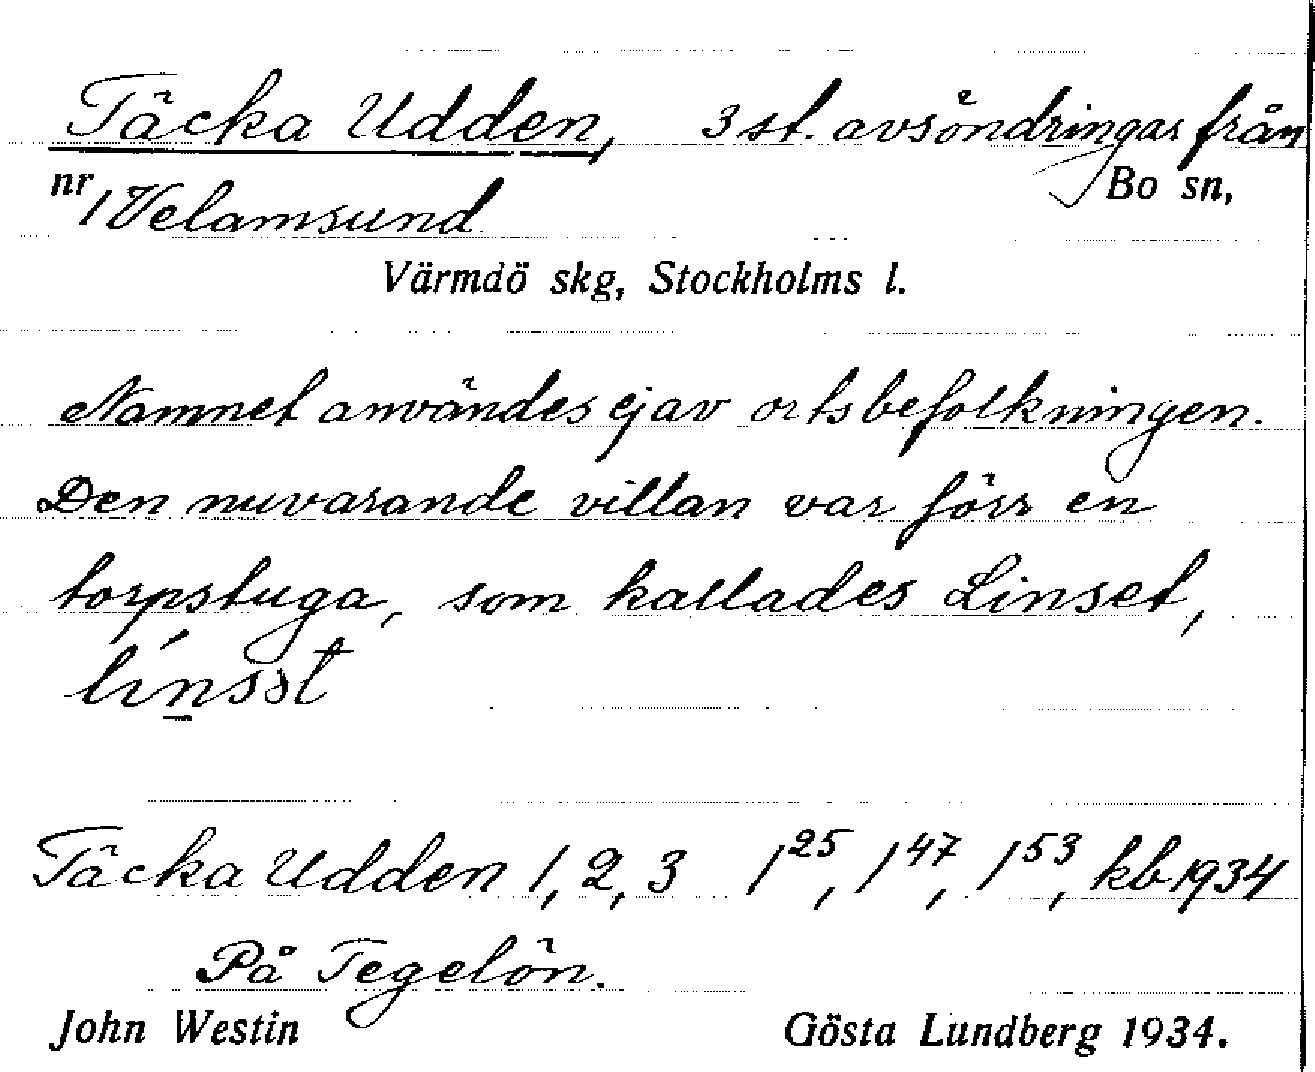 Täcka Udden, 3 st. avsöndringar från
nr 1 Velamsund Bo sn,
Värmdö skg, Stockholms l.
Namnet användes ej av ortsbefolkningen.
Den nuvarande villan var förr en
torpstuga, som kallades Linset,
Täcka Udden 1, 2, 3 1²⁵, 1⁴⁷, 1⁵³, kb 1934
På Tegelön.
John Westin Gösta Lundberg 1934.